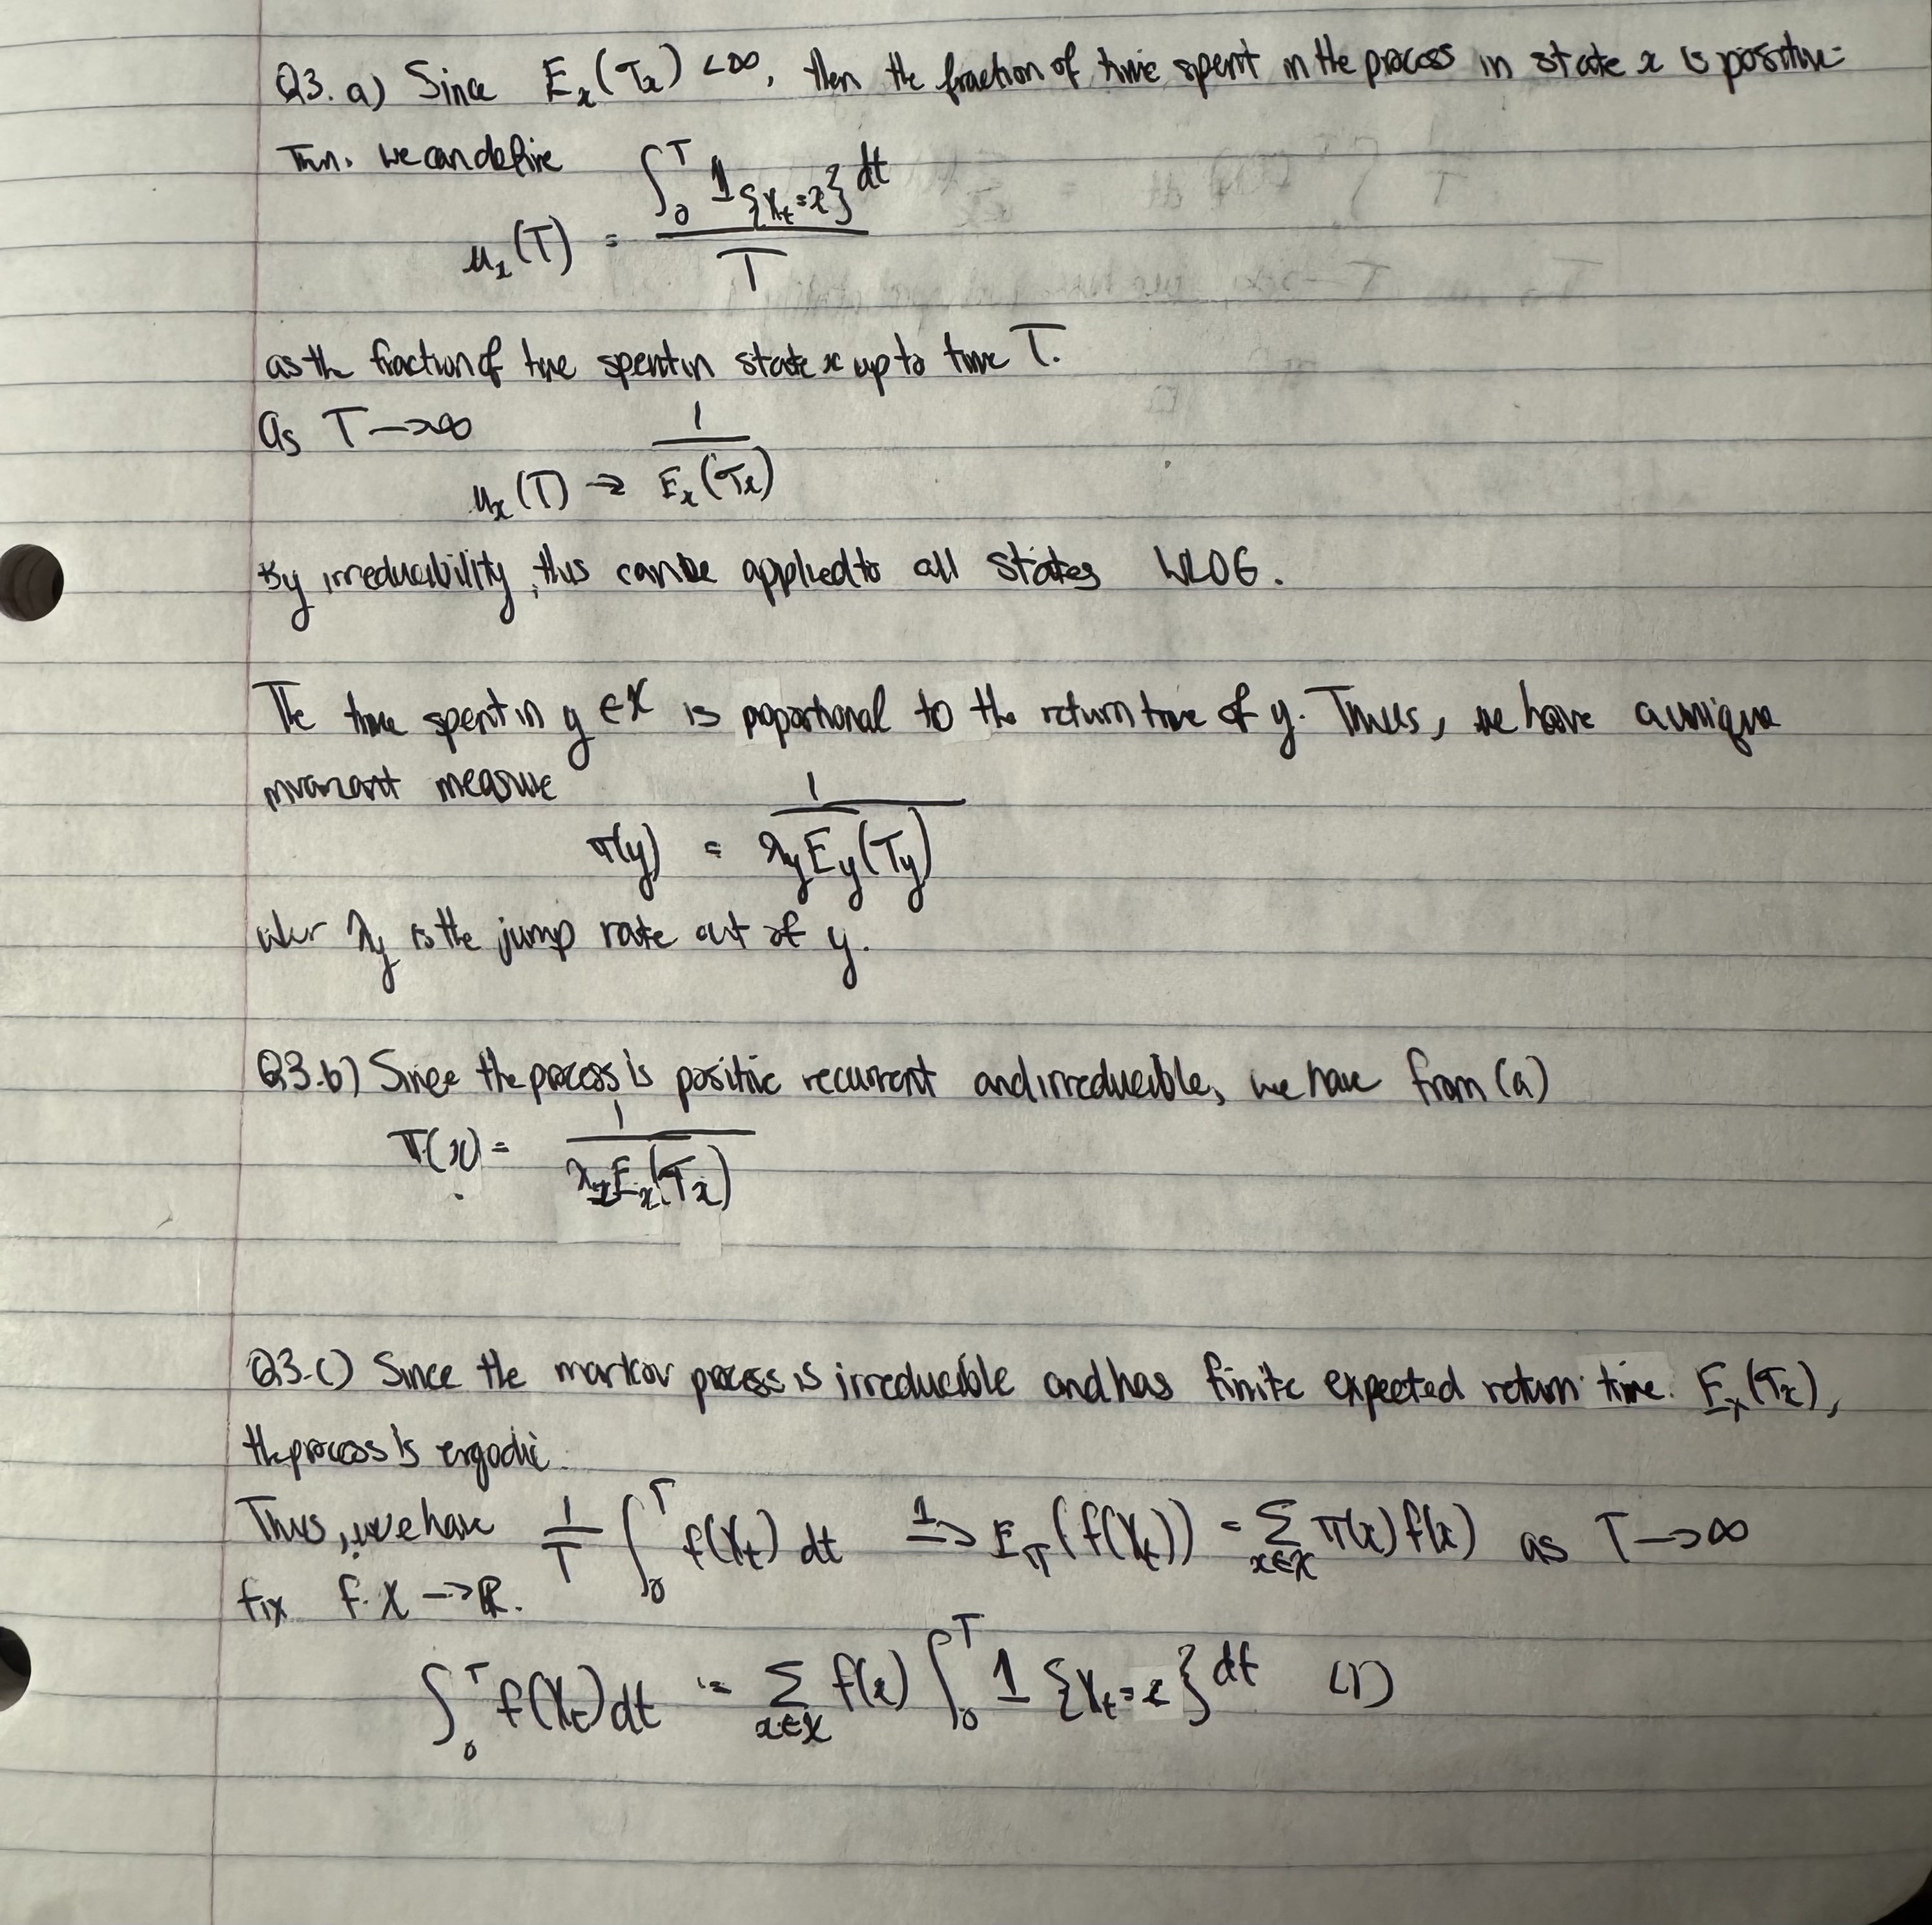 Q3. a) Since E_x(T_x) <∞, then the fraction of time spent in the process in state x is positive.
Then. we can define
μ_x(T) = ∫_0^T 1_{X_t = x} dt / T
as the fraction of time spent in state x up to time T.
As T →∞
μ_x(T) → 1 / E_x(T_x)
By irreducibility, this can be applied to all states WLOG.
The time spent in y ∈ X is proportional to the return time of y. Thus, we have a unique
invariant measure
π(y) = 1 / λ_y E_y(T_y)
wher λ_y is the jump rate out of y.
Q3.b) Since the process is positive recurrent and irreducible, we have from (a)
π(x) = 1 / λ_x E_x(T_x)
Q3.c) Since the markov process is irreducible and has finite expected return time. E_x(T_x),
the process is ergodic.
Thus, we have 1/T ∫_0^T f(X_t) dt →^1 E_π(f(X_t)) = Σ_{x∈X} π(x) f(x) as T →∞
fix f: X → R.
∫_0^T f(X_t) dt = Σ_{x∈X} f(x) ∫_0^T 1{X_t = x} dt (1)